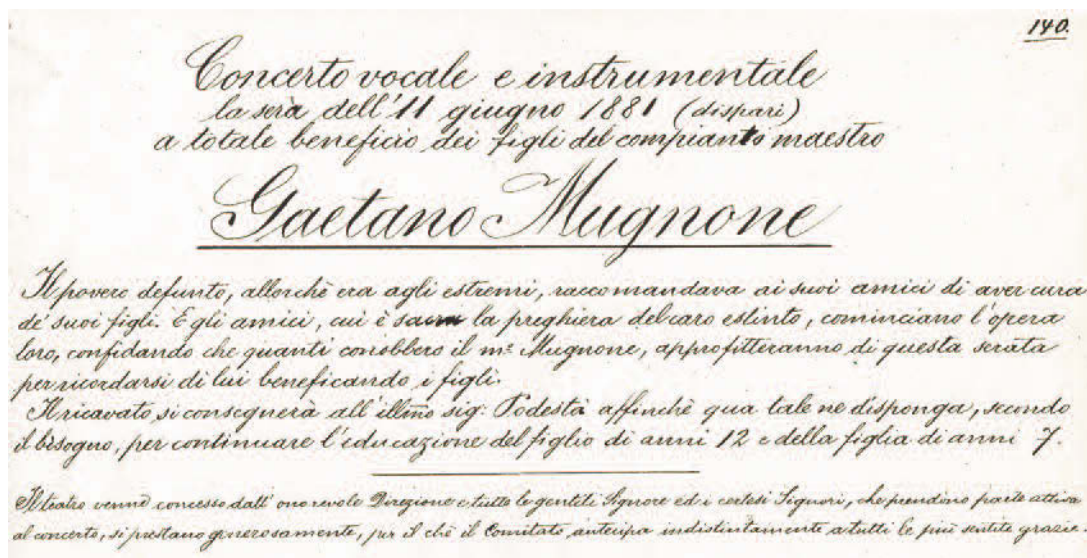 140.
Concerto vocale e instrumentale
la sera dell'11 giugno 1881 (dispari)
a totale beneficio dei figli del compianto maestro
Gaetano Mugnone
Il povero defunto, allorchè era agli estremi, raccomandava ai suoi amici di aver cura
de' suoi figli. E gli amici, cui è sacra la preghiera del caro estinto, cominciano l'opera
loro, confidando che quanti conobbero il mº Mugnone, approfitteranno di questa serata
per ricordarsi di lui beneficando i figli.
Il ricavato si consegnerà all'illmo sig: Podestà affinchè qua tale ne disponga, secondo
il bisogno, per continuare l'educazione del figlio di anni 12 e della figlia di anni 7.
Il teatro venne concesso dall'onorevole Direzione e tutte le gentili Signore ed i cortesi Signori, che prendono parte attiva
al concerto, si prestano generosamente, per il chè il Comitato antecipa indistintamente a tutti le più sentite grazie.